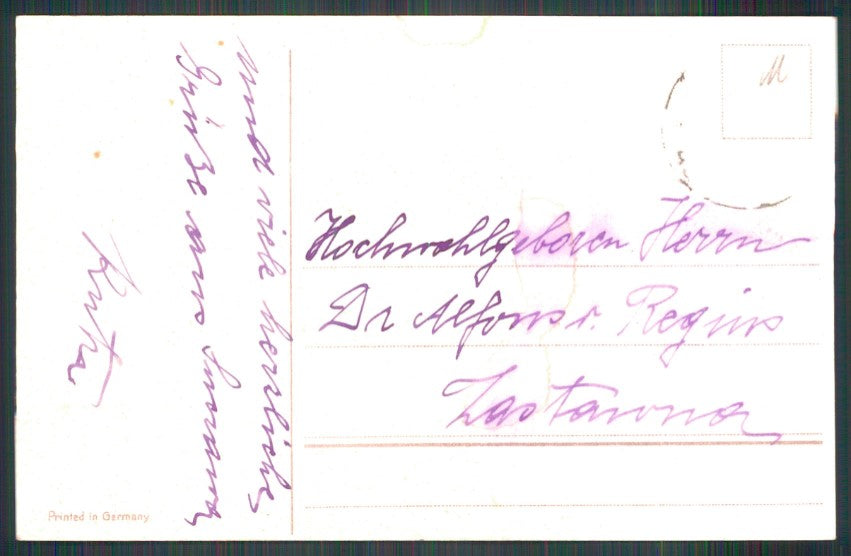 und viele herzliche
Grüße aus
M
Hochwohlgeboren Herrn
Dr Alfons v. Regius
Zastawna
Printed in Germany